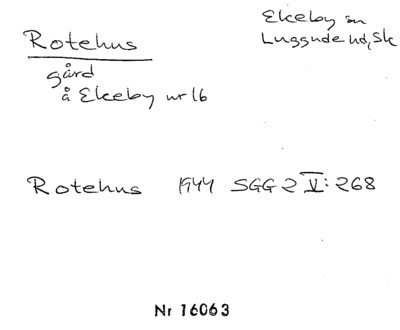 Rotehus
Ekeby sn
Luggude hd, Sk
gård
å Ekeby nr 16
Rotehus 1944 SGG 2 V: 268
Nr 16063